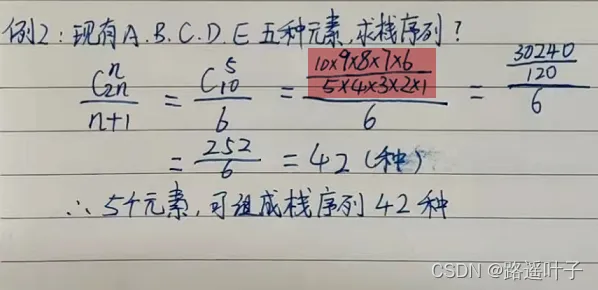 例2：现有A.B.C.D.E五种元素,求栈序列？
C₂ₙⁿ/n+1 = C₁₀⁵/6 = (10×9×8×7×6/5×4×3×2×1)/6 = (30240/120)/6
= 252/6 = 42 (种)
∴ 5个元素,可组成栈序列 42 种
CSDN @路遥叶子